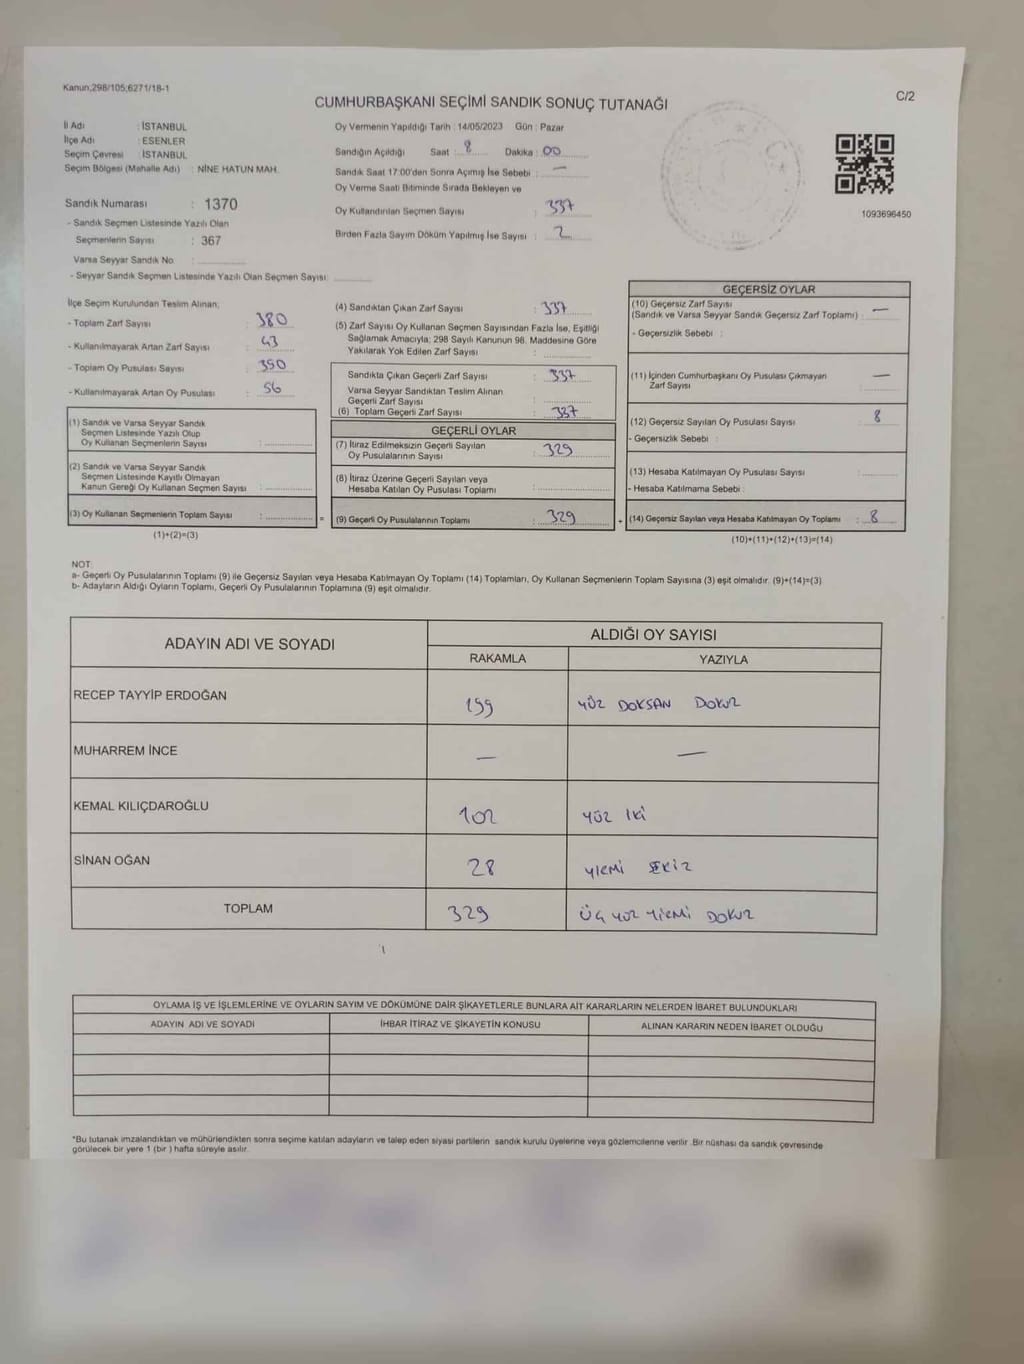 Kanun;298/105;6271/18-1
C/2
CUMHURBAŞKANI SEÇİMİ SANDIK SONUÇ TUTANAĞI
İl Adı : İSTANBUL
İlçe Adı : ESENLER
Seçim Çevresi : İSTANBUL
Seçim Bölgesi (Mahalle Adı) : NİNE HATUN MAH.
Sandık Numarası : 1370
- Sandık Seçmen Listesinde Yazılı Olan
Seçmenlerin Sayısı : 367
Varsa Seyyar Sandık No :
- Seyyar Sandık Seçmen Listesinde Yazılı Olan Seçmen Sayısı:
Oy Vermenin Yapıldığı Tarih : 14/05/2023 Gün : Pazar
Sandığın Açıldığı Saat : 8 Dakika : 00
Sandık Saat 17:00'den Sonra Açımış İse Sebebi : —
Oy Verme Saati Bitiminde Sırada Bekleyen ve
Oy Kullandırılan Seçmen Sayısı : 337
Birden Fazla Sayım Döküm Yapılmış İse Sayısı : 2
1093696450
İlçe Seçim Kurulundan Teslim Alınan;
- Toplam Zarf Sayısı : 380
- Kullanılmayarak Artan Zarf Sayısı : 43
- Toplam Oy Pusulası Sayısı : 350
- Kullanılmayarak Artan Oy Pusulası : 56
(1) Sandık ve Varsa Seyyar Sandık
Seçmen Listesinde Yazılı Olup
Oy Kullanan Seçmenlerin Sayısı :
(2) Sandık ve Varsa Seyyar Sandık
Seçmen Listesinde Kayıtlı Olmayan
Kanun Gereği Oy Kullanan Seçmen Sayısı :
(3) Oy Kullanan Seçmenlerin Toplam Sayısı : =
(1)+(2)=(3)
(4) Sandıktan Çıkan Zarf Sayısı : 337
(5) Zarf Sayısı Oy Kullanan Seçmen Sayısından Fazla İse, Eşitliği
Sağlamak Amacıyla; 298 Sayılı Kanunun 98. Maddesine Göre
Yakılarak Yok Edilen Zarf Sayısı :
Sandıkta Çıkan Geçerli Zarf Sayısı : 337
Varsa Seyyar Sandıktan Teslim Alınan
Geçerli Zarf Sayısı :
(6) Toplam Geçerli Zarf Sayısı : 337
GEÇERLİ OYLAR
(7) İtiraz Edilmeksizin Geçerli Sayılan
Oy Pusulalarının Sayısı : 329
(8) İtiraz Üzerine Geçerli Sayılan veya
Hesaba Katılan Oy Pusulası Toplamı :
(9) Geçerli Oy Pusulalarının Toplamı : 329 +
GEÇERSİZ OYLAR
(10) Geçersiz Zarf Sayısı
(Sandık ve Varsa Seyyar Sandık Geçersiz Zarf Toplamı) : —
- Geçersizlik Sebebi :
(11) İçinden Cumhurbaşkanı Oy Pusulası Çıkmayan
Zarf Sayısı : —
(12) Geçersiz Sayılan Oy Pusulası Sayısı : 8
- Geçersizlik Sebebi :
(13) Hesaba Katılmayan Oy Pusulası Sayısı :
- Hesaba Katılmama Sebebi :
(14) Geçersiz Sayılan veya Hesaba Katılmayan Oy Toplamı : 8
(10)+(11)+(12)+(13)=(14)
NOT:
a- Geçerli Oy Pusulalarının Toplamı (9) ile Geçersiz Sayılan veya Hesaba Katılmayan Oy Toplamı (14) Toplamları, Oy Kullanan Seçmenlerin Toplam Sayısına (3) eşit olmalıdır. (9)+(14)=(3)
b- Adayların Aldığı Oyların Toplamı, Geçerli Oy Pusulalarının Toplamına (9) eşit olmalıdır.
ADAYIN ADI VE SOYADI ALDIĞI OY SAYISI
RAKAMLA YAZIYLA
RECEP TAYYİP ERDOĞAN 199 YÜZ DOKSAN DOKUZ
MUHARREM İNCE — —
KEMAL KILIÇDAROĞLU 102 YÜZ İKİ
SİNAN OĞAN 28 YİRMİ SEKİZ
TOPLAM 329 ÜÇ YÜZ YİRMİ DOKUZ
OYLAMA İŞ VE İŞLEMLERİNE VE OYLARIN SAYIM VE DÖKÜMÜNE DAİR ŞİKAYETLERLE BUNLARA AİT KARARLARIN NELERDEN İBARET BULUNDUKLARI
ADAYIN ADI VE SOYADI İHBAR İTİRAZ VE ŞİKAYETİN KONUSU ALINAN KARARIN NEDEN İBARET OLDUĞU
*Bu tutanak imzalandıktan ve mühürlendikten sonra seçime katılan adayların ve talep eden siyasi partilerin sandık kurulu üyelerine veya gözlemcilerine verilir .Bir nüshası da sandık çevresinde
görülecek bir yere 1 (bir ) hafta süreyle asılır.